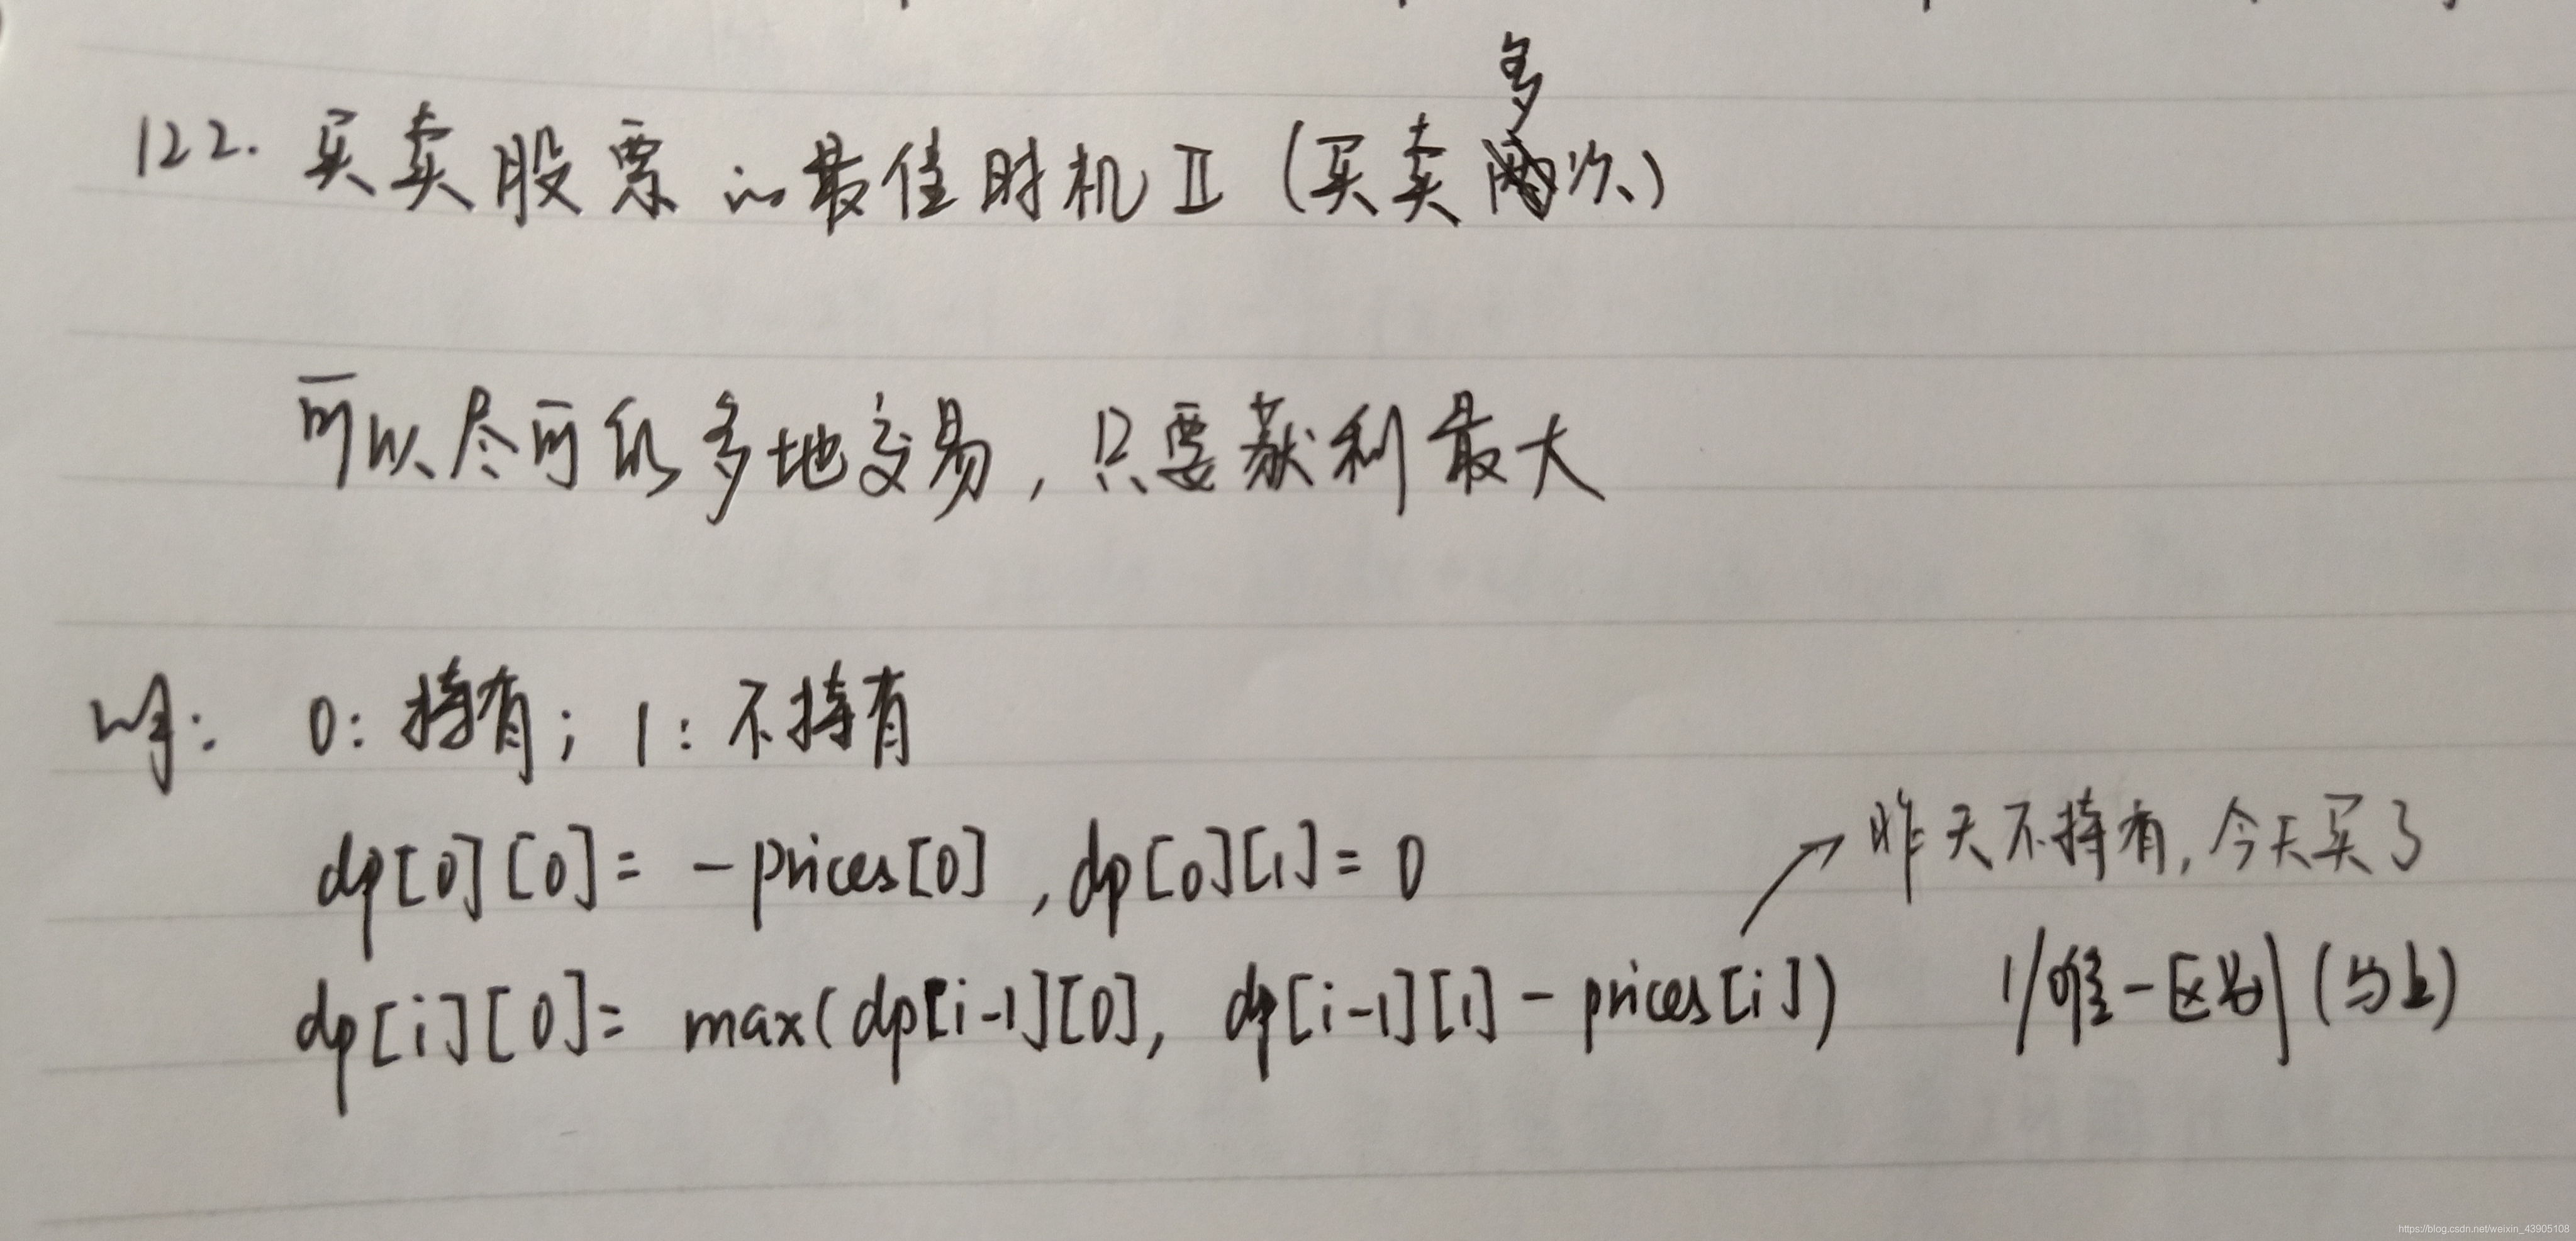 122. 买卖股票的最佳时机 II (买卖多次)
可以尽可能多地交易，只要获利最大
0: 持有; 1: 不持有
dp[0][0]= -prices[0], dp[0][1]= 0
昨天不持有, 今天买了
dp[i][0]= max(dp[i-1][0], dp[i-1][1] - prices[i])
//唯一区别 (与上)
https://blog.csdn.net/weixin_43905108